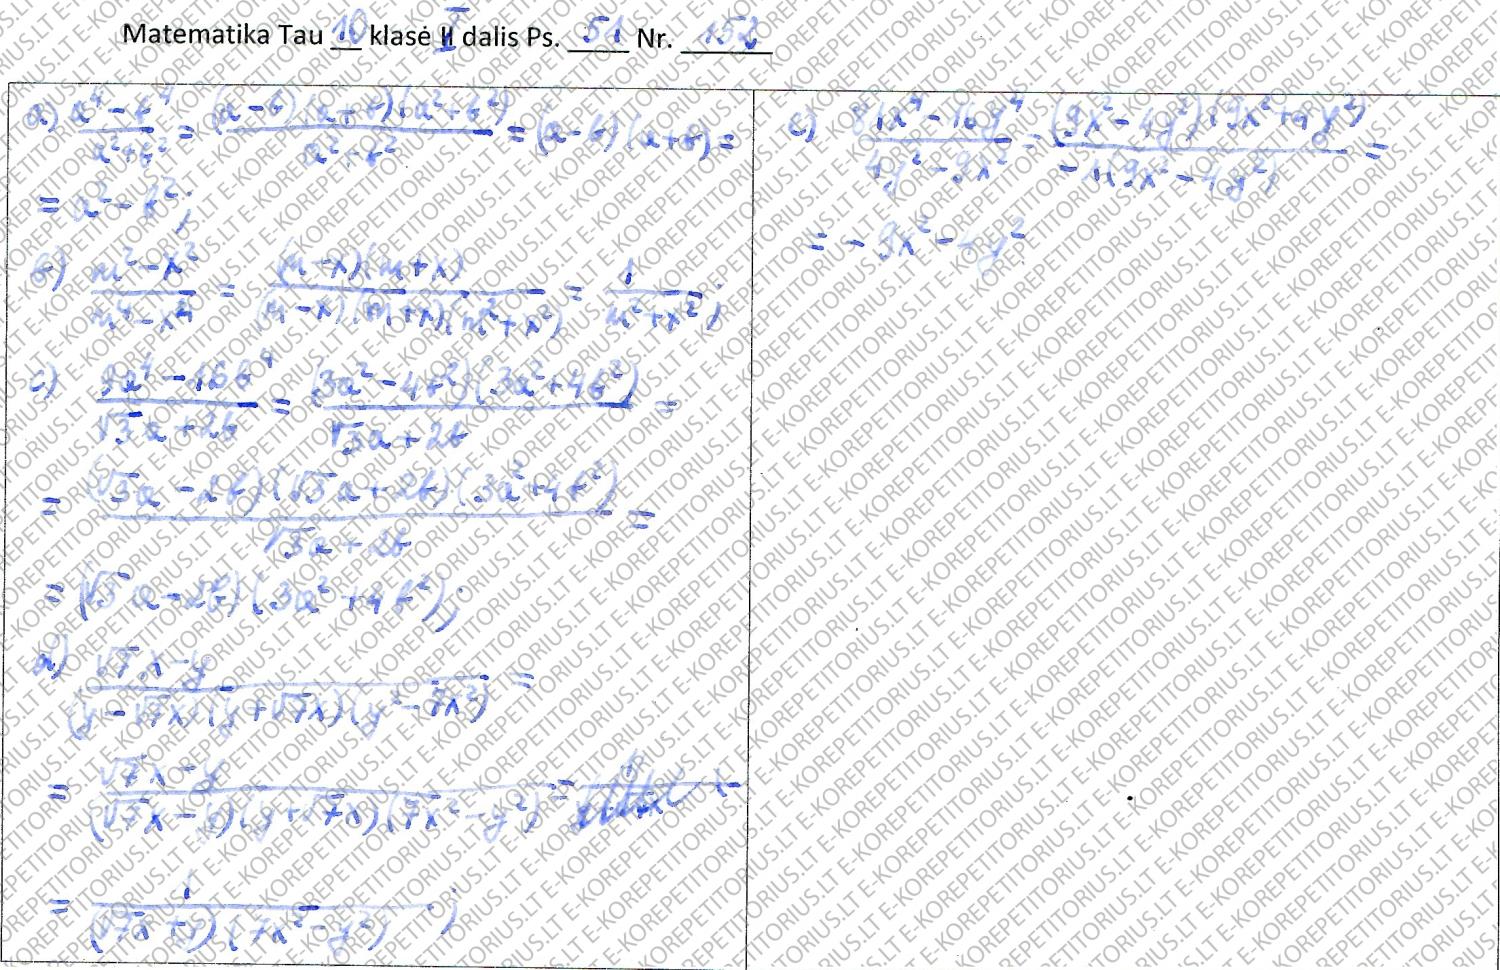 Matematika Tau 10 klasė I dalis Ps. 51 Nr. 152
a) (a⁴ - b⁴)/(a² + b²) = ((a - b)(a + b)(a² + b²))/(a² + b²) = (a - b)(a + b) =
= a² - b²;
b) (m² - x²)/(m⁴ - x⁴) = ((m - x)(m + x))/((m - x)(m + x)(m² + x²)) = 1/(m² + x²);
c) (9a⁴ - 16b⁴)/(√3a + 2b) = ((3a² - 4b²)(3a² + 4b²))/(√3a + 2b) =
= ((√3a - 2b)(√3a + 2b)(3a² + 4b²))/(√3a + 2b) =
= (√3a - 2b)(3a² + 4b²);
d) (√7x - y)/((y - √7x)(y + √7x)(y² - 7x²)) =
= (√7x - y)/((√7x - y)(y + √7x)(7x² - y²)) =
= 1/((√7x + y)(7x² - y²));
e) (81x⁴ - 16y⁴)/(4y² - 9x²) = ((9x² - 4y²)(9x² + 4y²))/(-1(9x² - 4y²)) =
= - 9x² - 4y²
E-KOREPETITORIUS.LT